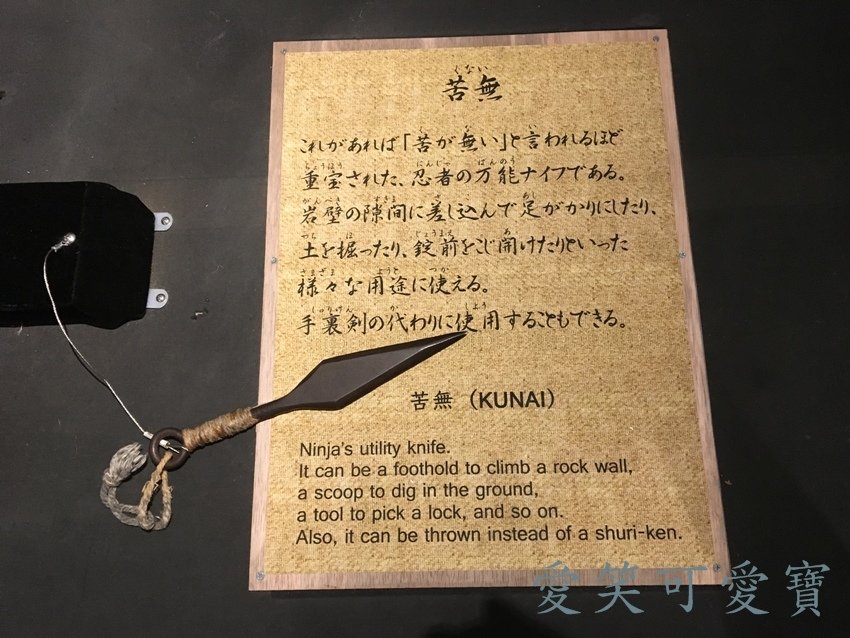 くない
苦無
これがあれば「苦が無い」と言われるほど
重宝された、忍者の万能ナイフである。
岩壁の隙間に差し込んで足がかりにしたり、
土を掘ったり、錠前をこじ開けたりといった
様々な用途に使える。
手裏剣の代わりに使用することもできる。
苦無（KUNAI）
Ninja's utility knife.
It can be a foothold to climb a rock wall,
a scoop to dig in the ground,
a tool to pick a lock, and so on.
Also, it can be thrown instead of a shuri-ken.
愛笑可愛寶